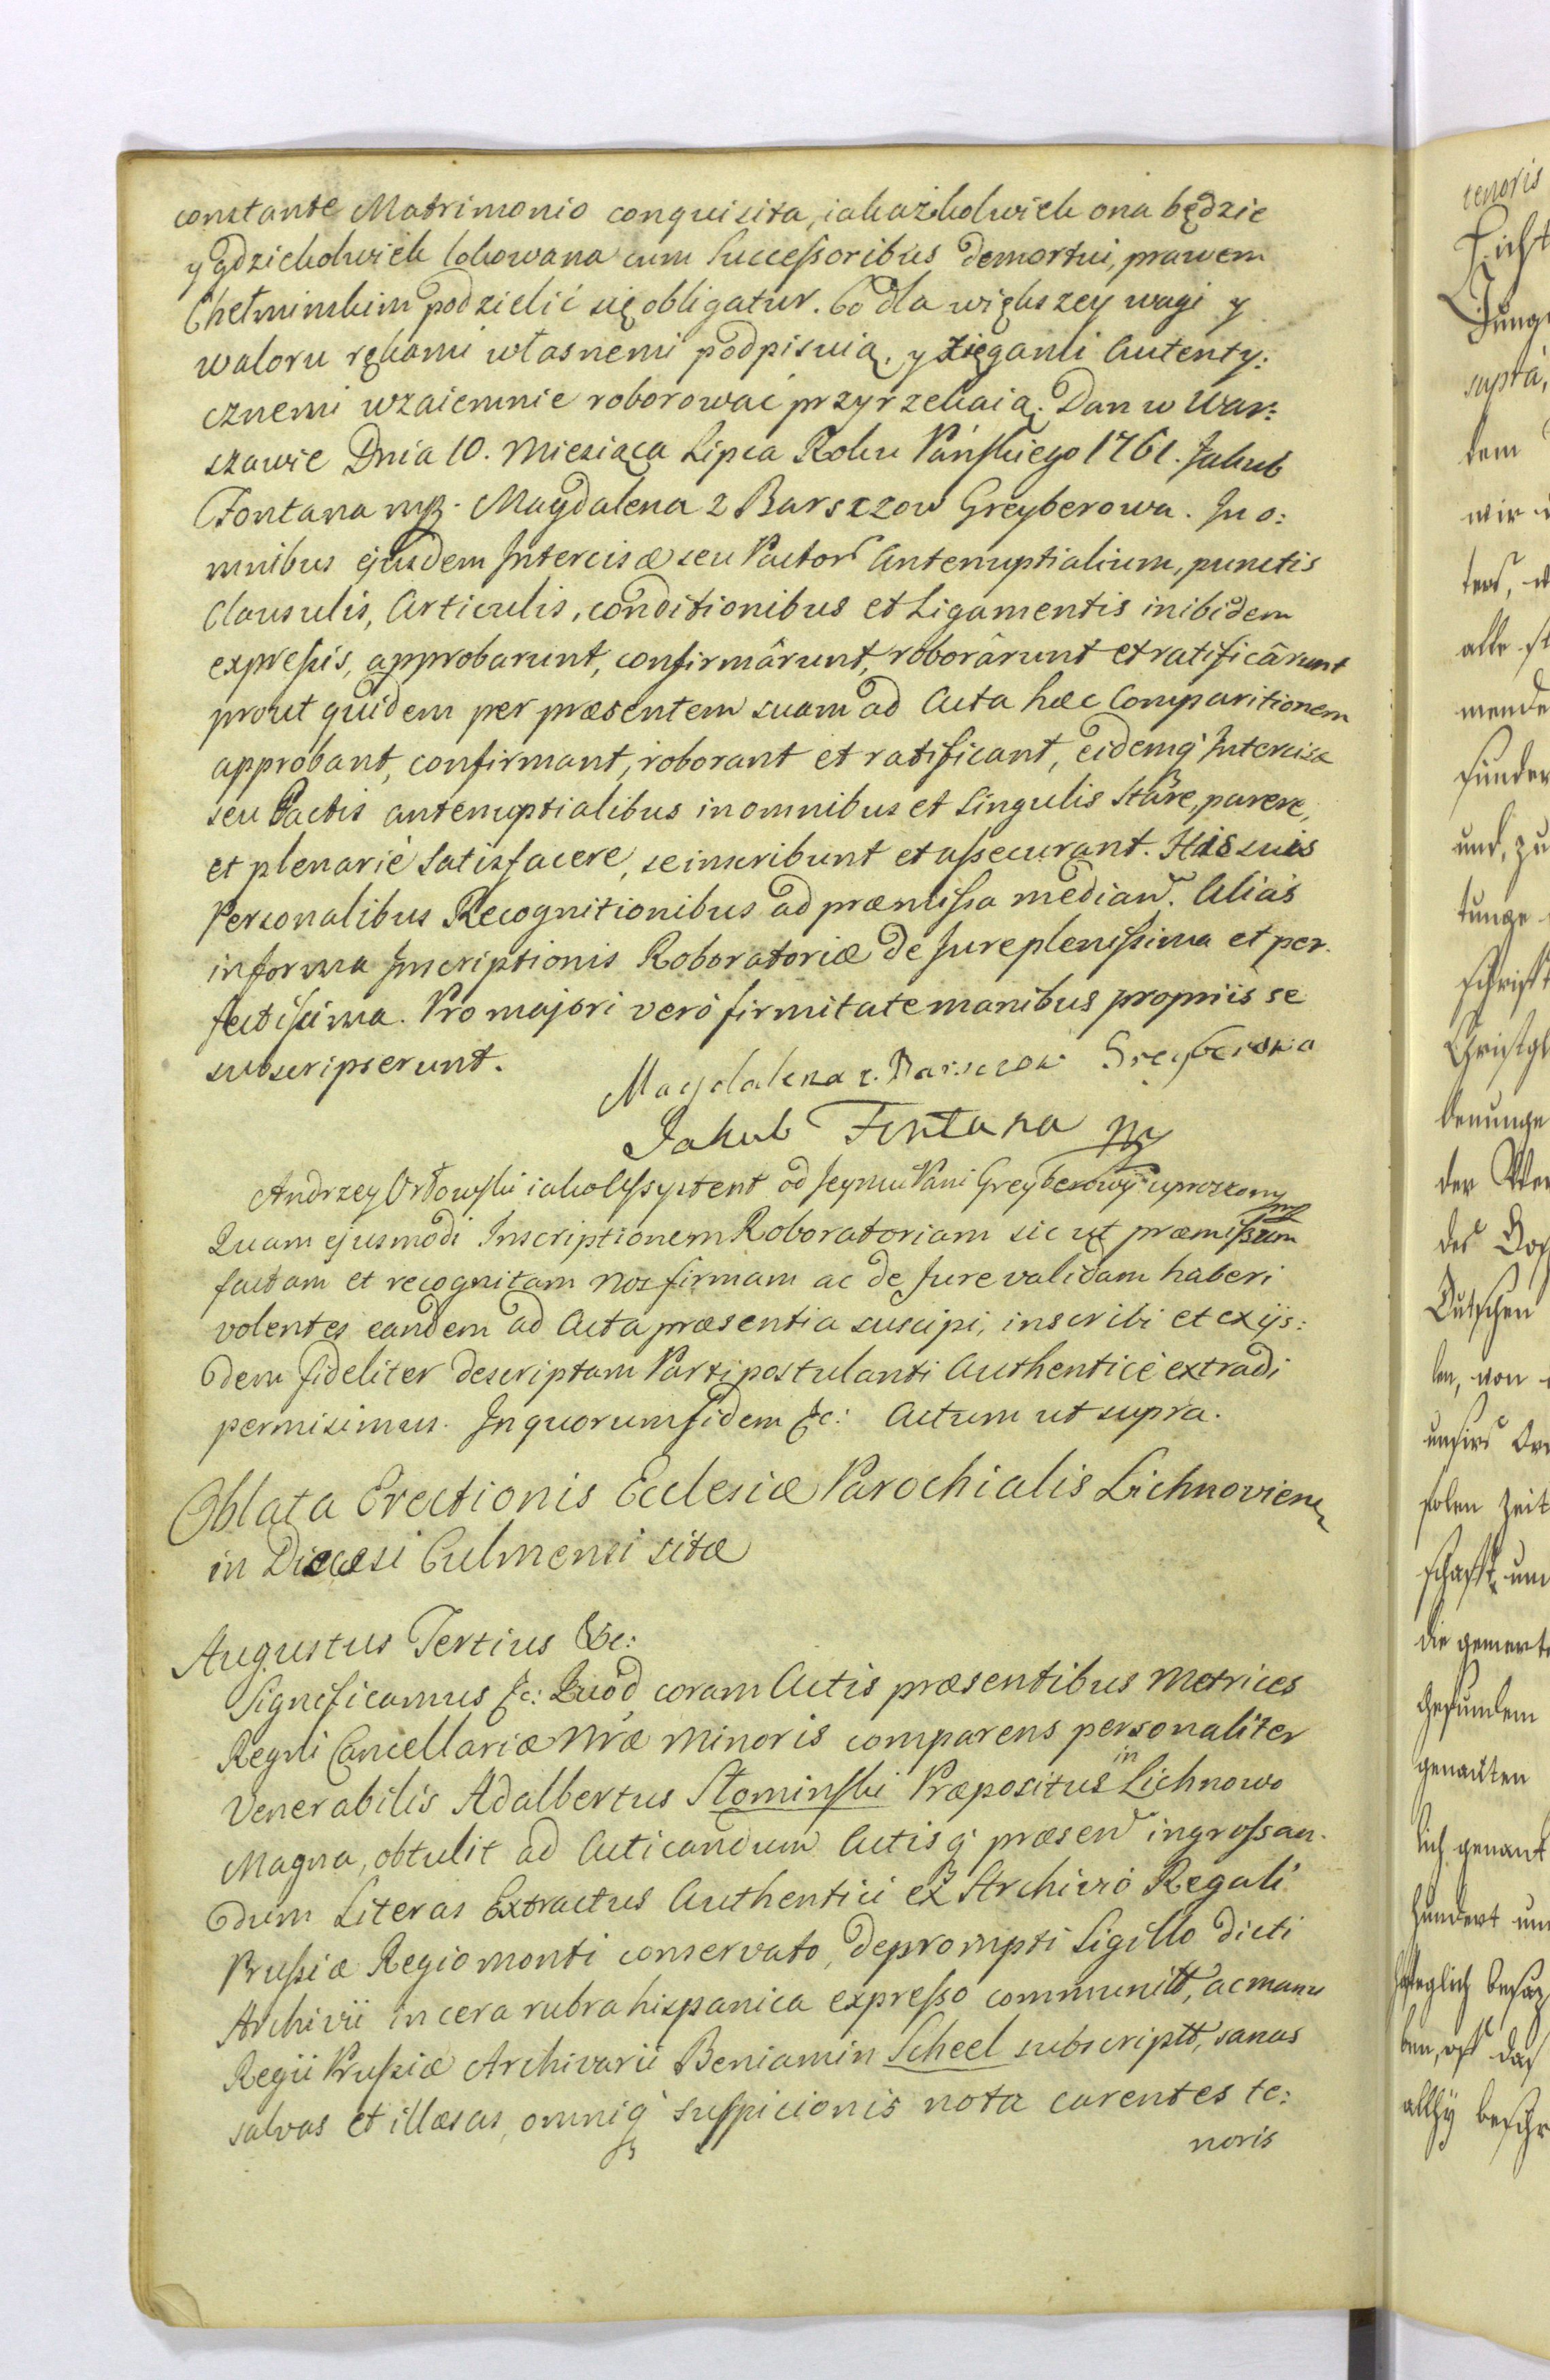 constante Matrimonio conquisita, iakażkolwiek ona będzie
y gdziekolwiek lokowana cum Successoribus demortui, prawem
Chełminskim podzielić się obligatur. Co dla większey wagi y
waloru rękami własnemi podpisuią, y xięgami Autenty:
cznemi wzaiemnie roborować przyrzekaią. Dan w War:
szawie Dnia 10. Miesiąca Lipca Roku Pańskiego 1761. Jakub
Fontana mp. Magdalena z Barszzow Greyberowa. In o:
mnibus ejusdem Intercisæ seu Pactor Antenuptialium, punctis
Clausulis, Articulis, conditionibus et Ligamentis inibidem
expressis, approbarunt, confirmârunt, roborârunt et ratificârunt
prout quidem per præsentem suam ad Acta hæc Comparitionem
approbant, confirmant, roborant et ratificant, eidemq Intercisæ
seu Pactis antenuptialibus in omnibus et singulis stare, parere,
et plenarié satisfacere, se inscribunt et assecurant. His suis
Personalibus Recognitionibus ad præmissa median. Aliás
in forma Inscriptionis Roboratoriæ de Jure plenissima et per-
fectissima. Pro majori veró firmitate manibus propriis se
subscripserunt.
Magdalena z. Barszczow Greyberowa
Jakub Fontana mp
Andrzey Orłowski iako Assystent od Jeymci Pani Greyberowy uproszony mp
Quam ejusmodi Inscriptionem Roboratoriam sic ut præmissum
factam et recognitam Nos firmam ac de Jure validam haberi
volentes eandem ad Acta præsentia suscipi, inscribi et ex ijs:
dem fideliter descriptam Parti postulanti Authenticé extradi
permisimus. In quorum fidem &c: Actum ut supra.
Oblata Erectionis Ecclesiæ Parochialis Lichnovien
in Diæcesi Culmensi sitæ
Augustus Tertius &c:
Significamus &c: Quód coram Actis præsentibus Metrices
Regni Cancellariæ Nræ Minoris comparens personaliter
Venerabilis Adalbertus Słominski Præpositus in Lichnowo
Magna, obtulit ad Acticandum Actisq præsen ingrossan-
dum Literas Extractus Authentici ex Archivo Regali
Prussiæ Regiomonti conservato, deprompti Sigillo dicti
Archivii in cera rubra hispanica expresso communitt, ac manu
Regii Prussiæ Archivarii Beniamin Scheel subscriptt, sanas
salvas et illæsas, omniq suspicionis nota carentes te:
noris